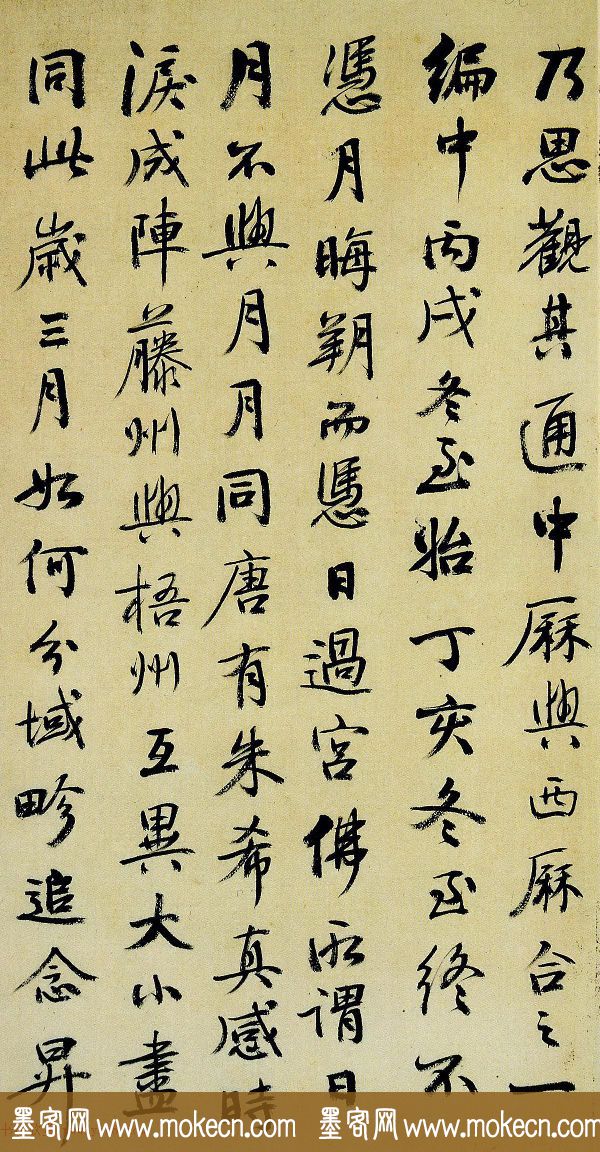 乃思觀其通中厤與西厤合之一
編中丙戌冬至始丁亥冬至終不
憑月晦朔而憑日過宮佛所謂日
月不與月月同唐有朱希真感時
淚成陣藤州與梧州互異大小盡
同此歲三月如何分域畛追念昇
墨客网 www.mokecn.com 墨客网 www.mokecn.com